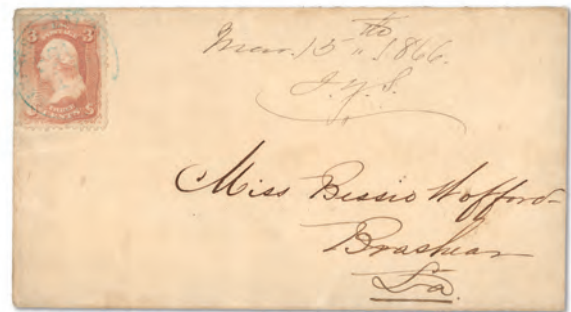 3 3
THREE
CENTS
Mar. 15th 1866.
J.Y.S.
Miss Bessie Wofford
Brashear
La.